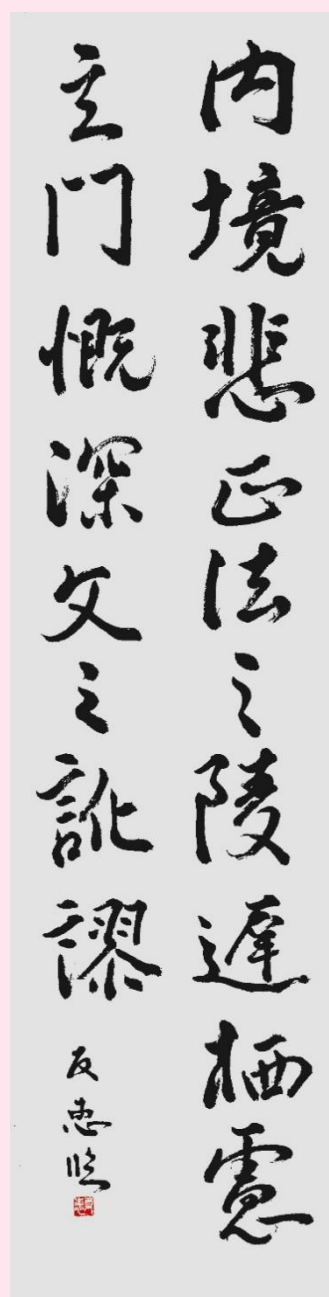 内境悲正法之陵遲栖慮
玄門慨深文之訛謬
友忠临